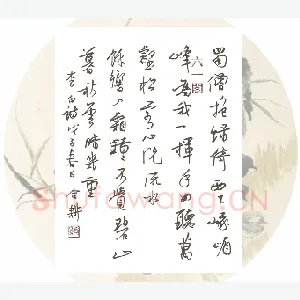 蜀僧抱绿绮西下峨嵋
峰為我一揮手如聽萬
壑松客心洗流水
餘響入霜鐘不覺碧山
暮秋雲暗幾重
李白诗戊子春日
Shufawang.CN